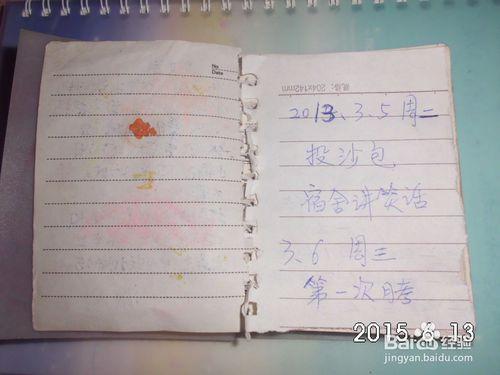 No
Date
规格：204x142mm
2013、3、5 周二
投沙包
宿舍讲笑话
3、6 周三
第一次月考
2015 8 13
Baidu 经验
jingyan.baidu.com